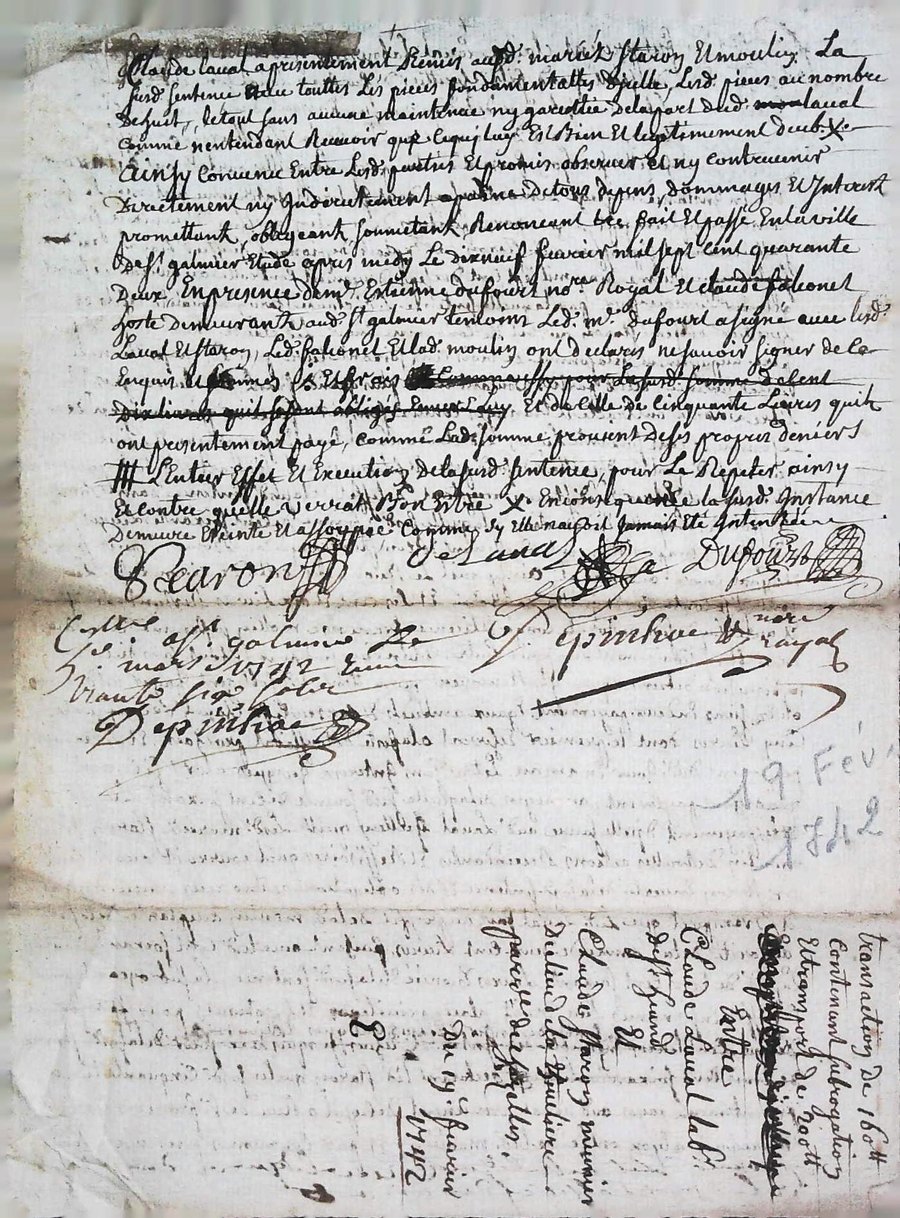 Claude laval apresentement Remis ausd. mariés staron Et moulin, La
susd. sentence avec touttes Les pieces fondamentalles dicelle, Lesd. pieces au nombre
De huit, le tout sans aucune maintenue ny garentie De la part dud. laval
comme nentendant Recevoir que ce qui luy Est Bien Et legitimement deub. X.
ainsy Convenu Entre Lesd. parties Et promis observer Et ny contrevenir
Directement ny Indirectement apaine de tous depens, dommages Et Interest
promettant, obligeant soumetant Renonceant &ce fait Et passé En la ville
De st. galmier Etude apres midy Le dixneuf fevrier mil sept cent quarante
Deux, En presence de mr. Estienne dufourt nore Royal Et claude falconet
hoste demeurants aud. st galmier temoins Led. mr. dufourt a signé avec lesd.
Laval Et staron, Led. falconet Et lad. moulin ont declarés ne savoir signer de ce
Enquis Et sommés Et frais pour La susd. somme de cent
dix livres quils se sont obligés Envers Luy, Et de Celle de Cinquante Livres quils
ont presentement payé, comme Lad. somme provenant De ses propres deniers
# L'Entier Effet Et Execution de la susd. sentence, pour Le Repeter ainsy
Et contre quelle verrat Bon Estre X. En consequence la susd. Instance
Demeure Eteinte Et assoupie Comme sy Elle navoit Jamais Eté Intentée
Staron De Laval Dufourt
Depinhac nore
royal
Coll. a st. galmier Le
5e. mars 1742 Reçu
trante six sols
Depinhac
19 Fév.
1742
transaction de 160 ₶
Contenant subrogation
Et transport de 200 ₶
Entre
Claude Laval labr.
de st. heand
Et
Claude staron munier
Du lieu de la
parr. de
Du 19e. fevrier
1742